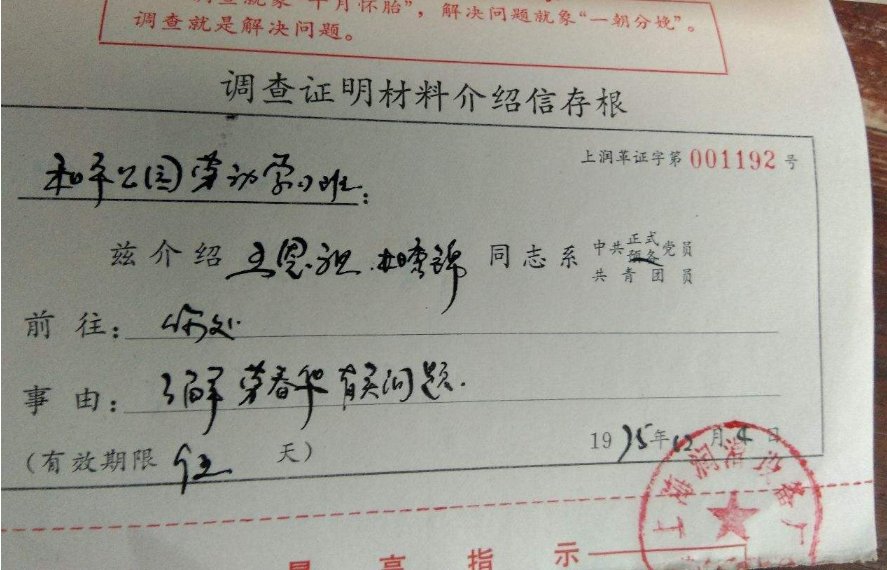 调查就象“十月怀胎”，解决问题就象“一朝分娩”。
调查就是解决问题。
调查证明材料介绍信存根
上润革证字第 001192 号
和平公园劳动学习班：
兹介绍 王恩祖 同志系 中共正式预备党员 共青团员
前往：你处
事由：了解劳春华有关问题.
(有效期限 伍 天) 1975年12月4日
上海润滑设备厂
最高指示